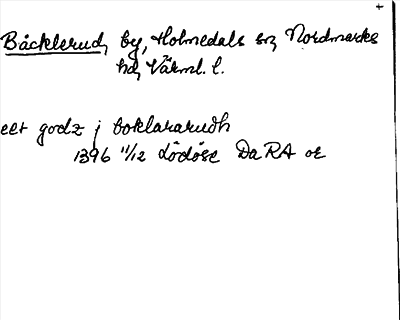 +
Bäcklerud, by, Holmedals sn, Nordmarks
hd, Värml. l.
eet godz j boklararudh
1396 11/12 Lödöse DaRA or